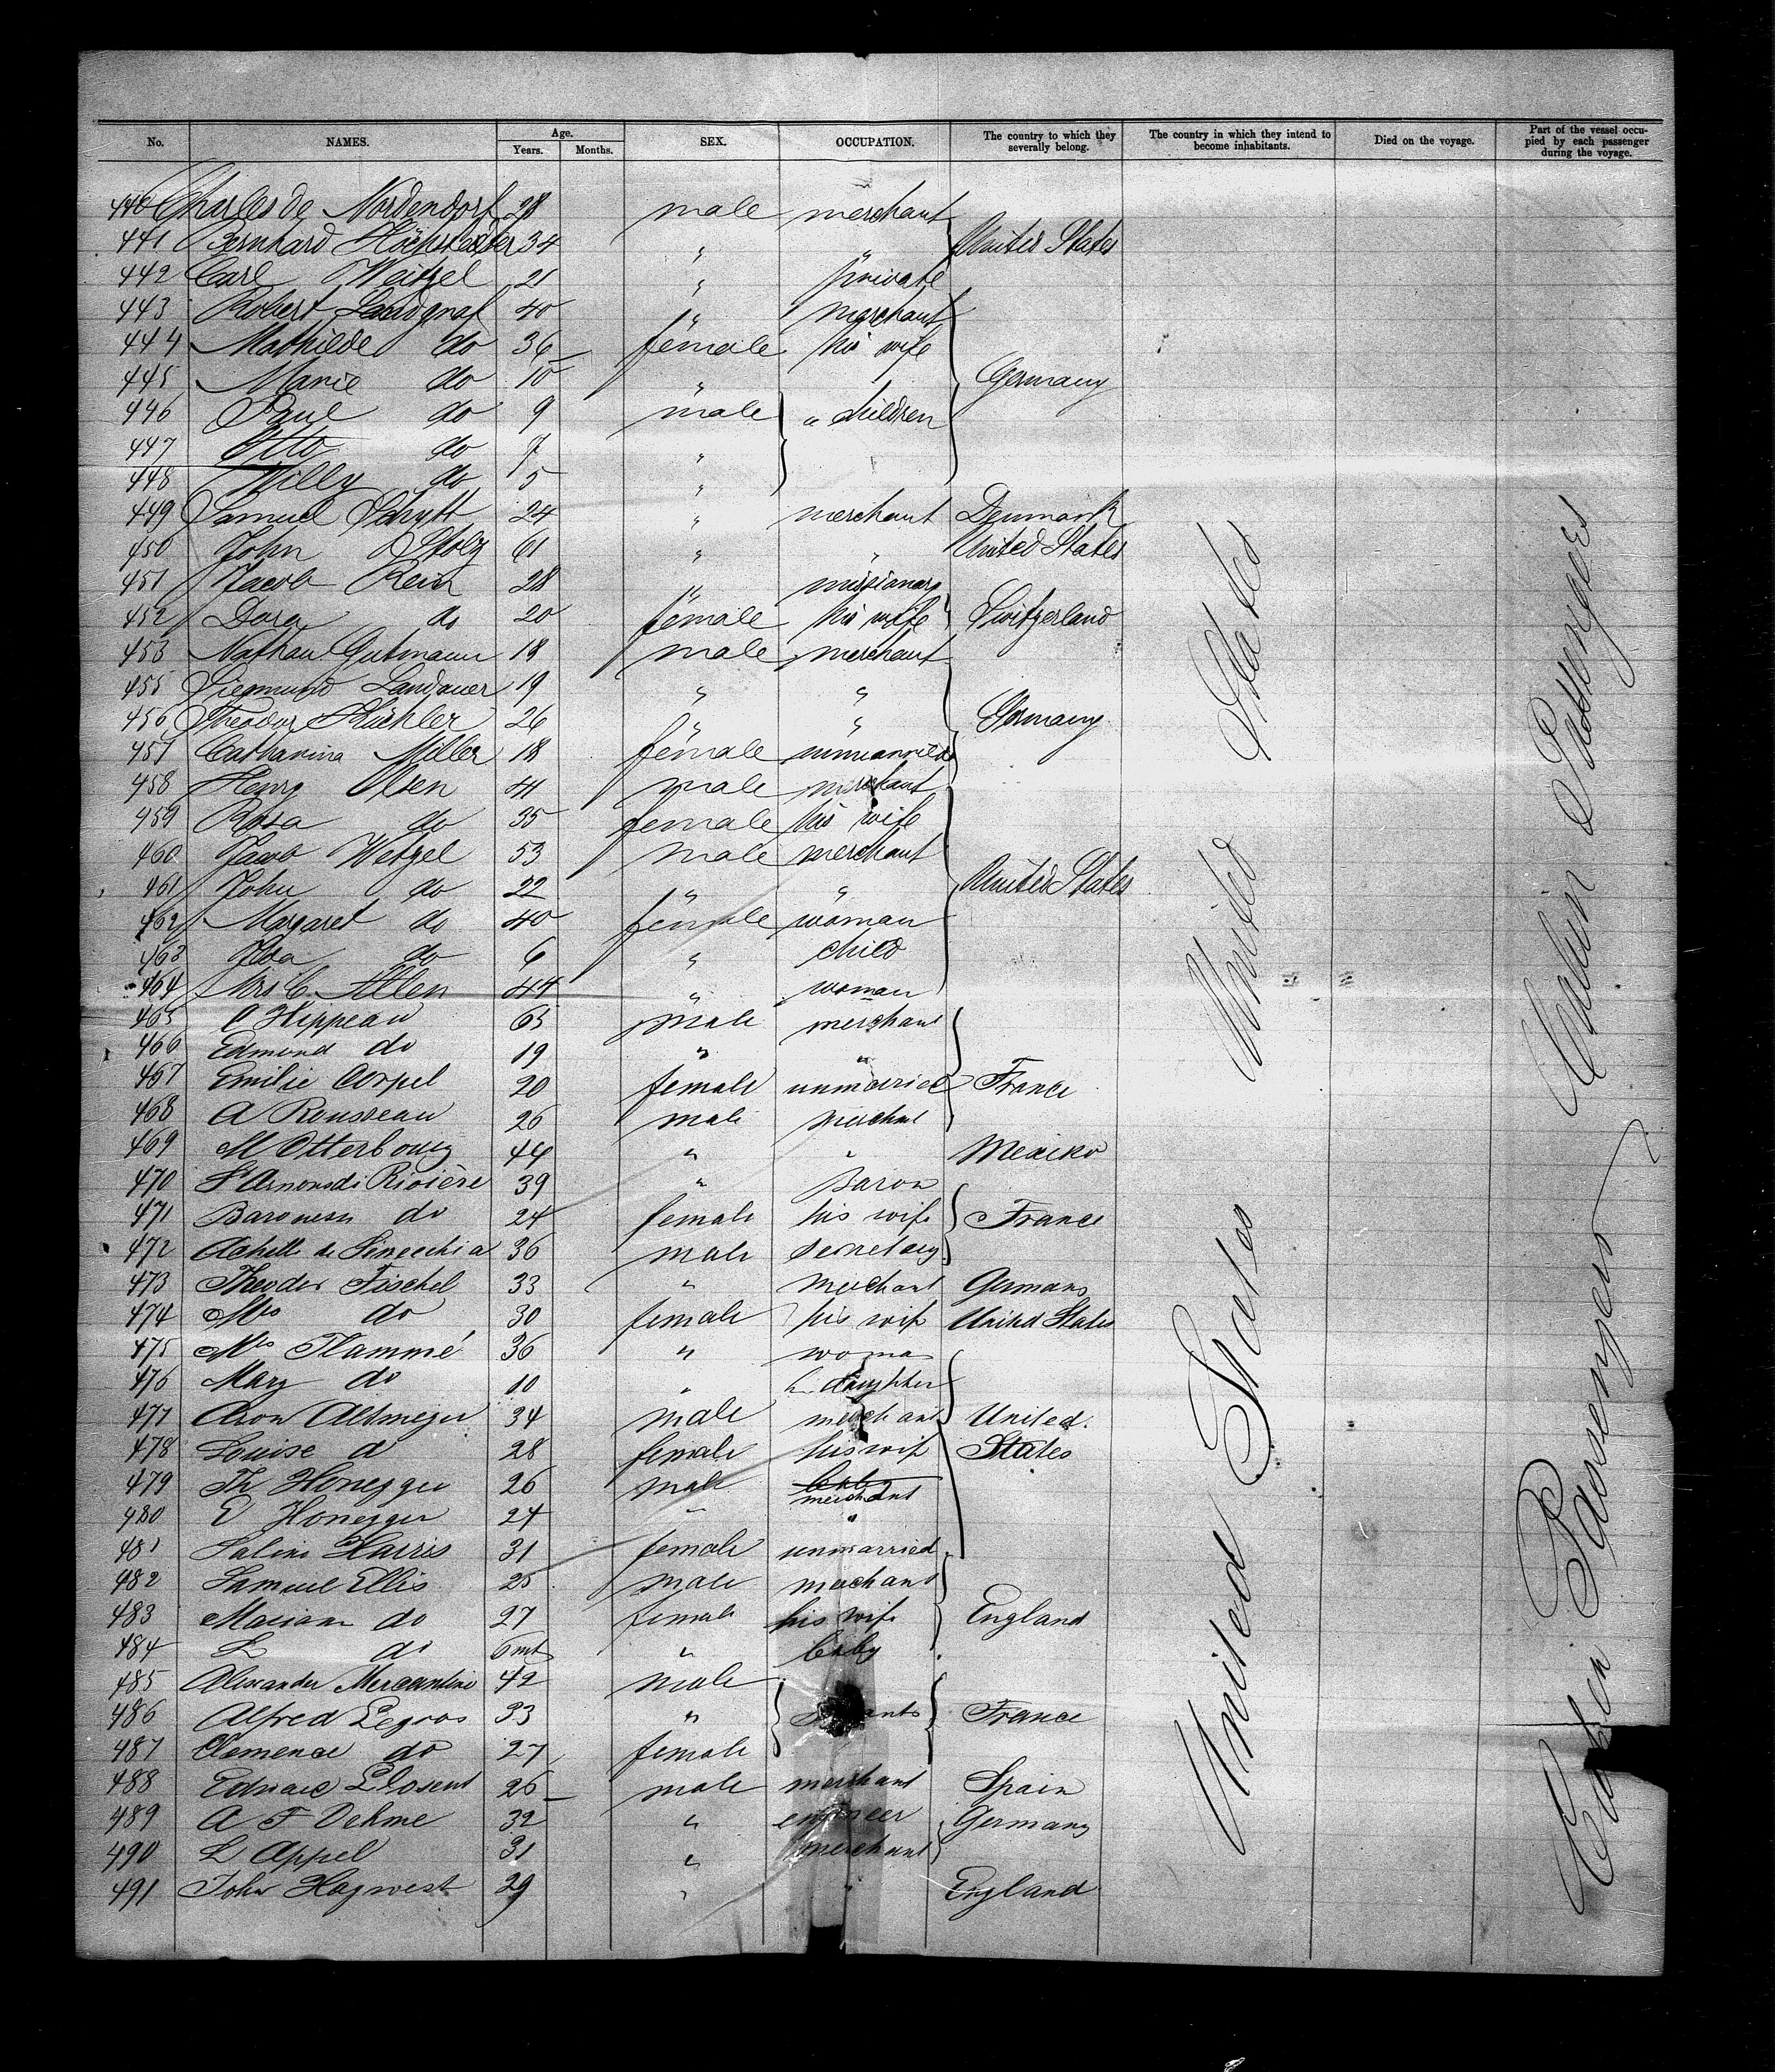 No. NAMES. Age. Years. Months. SEX. OCCUPATION. The country to which they severally belong. The country in which they intend to become inhabitants. Died on the voyage. Part of the vessel occupied by each passenger during the voyage.
440 Charles de Nordendorf 28 male merchant
441 Bernhard Höchstädter 34 " " United States
442 Carl Weitzel 21 " private
443 Robert Landgraf 40 " merchant
444 Mathilde do 36 female his wife
445 Marie do 10 " Germany
446 Paul do 9 male " children
447 Otto do 7 "
448 Willy do 5 "
449 Samuel Schytt 24 " merchant Denmark
450 John Stolz 61 " " United States
451 Jacob Rein 28 " missionary
452 Dora do 20 female his wife Switzerland
453 Nathan Gutmann 18 male merchant
455 Siegmund Landauer 19 " "
456 Theodor Küchler 26 " " Germany
457 Catharina Miller 18 female unmarried
458 Henry Olsen 41 male merchant
459 Rosa do 35 female his wife
460 Jacob Wetzel 53 male merchant
461 John do 22 " " United States
462 Margaret do 40 female woman
463 Ida do 6 " child
464 Mrs C. Allen 44 " woman
465 C Hippeau 63 male merchant
466 Edmond do 19 " "
467 Emilie Corpel 20 female unmarried France
468 A Rousseau 26 male merchant
469 M Otterbourg 44 " " Mexiko
470 St Arnous de Rivière 39 " Baron
471 Baroness do 24 female his wife France
472 Achille de Sinecchia 36 male secretary
473 Theodor Fischel 33 " merchant Germany
474 Mrs do 30 female his wife United States
475 Mrs Flammé 36 " woman
476 Mary do 10 " h daughter
477 Aron Altmeyer 34 male merchant United
478 Louise d 28 female his wife States
479 Th Honegger 26 male baby merchant
480 E Honegger 24 " "
481 Salini Harris 31 female unmarried
482 Samuel Ellis 25 male merchant
483 Mariam do 27 female his wife England
484 L do 6 mt " baby
485 Alexander Mercantini 42 male
486 Alfred Legros 33 " France
487 Clemence do 27 female
488 Eduard Llosent 26 male merchant Spain
489 A F Dehme 32 " engineer Germany
490 L Appel 31 " merchant
491 John Hagwest 29 " " England
United States
United States
Cabin Passengers
Cabin Passengers